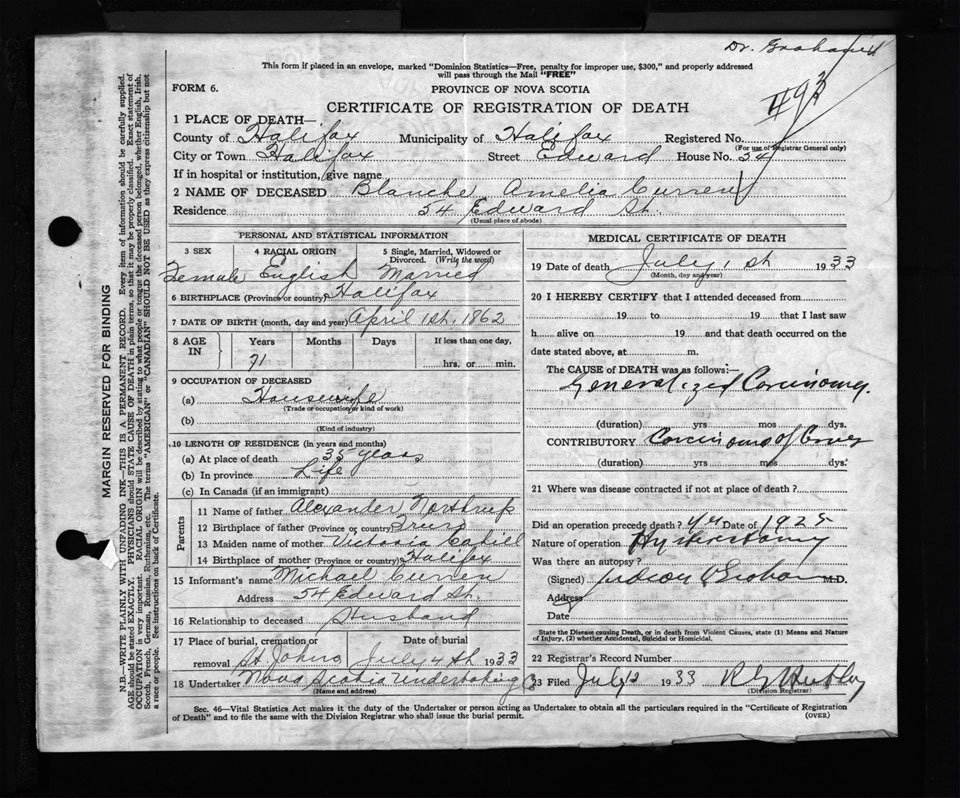 Dr. Graham
This form if placed in an envelope, marked "Dominion Statistics—Free, penalty for improper use, $300," and properly addressed
will pass through the Mail "FREE"
FORM 6.
PROVINCE OF NOVA SCOTIA
CERTIFICATE OF REGISTRATION OF DEATH
1 PLACE OF DEATH—
County of Halifax Municipality of Halifax Registered No.
(For use of Registrar General only)
City or Town Halifax Street Edward House No. 54
If in hospital or institution, give name
2 NAME OF DECEASED Blanche Amelia Curren
Residence 54 Edward St.
(Usual place of abode)
PERSONAL AND STATISTICAL INFORMATION
3 SEX 4 RACIAL ORIGIN 5 Single, Married, Widowed or
Divorced. (Write the word)
Female English Married
6 BIRTHPLACE (Province or country) Halifax
7 DATE OF BIRTH (month, day and year) April 1st, 1862
8 AGE IN Years Months Days If less than one day,
71 hrs. or min.
9 OCCUPATION OF DECEASED
(a) Housewife
(Trade or occupation or kind of work)
(b)
(Kind of industry)
10 LENGTH OF RESIDENCE (in years and months)
(a) At place of death 35 years
(b) In province Life
(c) In Canada (if an immigrant)
Parents
11 Name of father Alexander Northrup
12 Birthplace of father (Province or country) Truro
13 Maiden name of mother Victoria Cahill
14 Birthplace of mother (Province or country) Halifax
15 Informant's name Michael Curren
Address 54 Edward St.
16 Relationship to deceased Husband
17 Place of burial, cremation or Date of burial
removal St. Johns July 4th 1933
18 Undertaker Nova Scotia Undertaking Co
(Name and address)
MEDICAL CERTIFICATE OF DEATH
19 Date of death July 1st 1933
(Month, day and year)
20 I HEREBY CERTIFY that I attended deceased from
19 to 19 that I last saw
h alive on 19 and that death occurred on the
date stated above, at m.
The CAUSE of DEATH was as follows:—
Generalized Carcinoma.
(duration) yrs mos dys.
CONTRIBUTORY Carcinoma of
(duration) yrs mos dys.
21 Where was disease contracted if not at place of death?
Did an operation precede death? Yes Date of 1925
Nature of operation Hysterectomy
Was there an autopsy?
(Signed) Judson Graham M.D.
Address
Date
State the Disease causing Death, or in death from Violent Causes, state (1) Means and Nature
of Injury, (2) whether Accidental, Suicidal or Homicidal.
22 Registrar's Record Number
23 Filed July 2 1933
(Division Registrar)
Sec. 46—Vital Statistics Act makes it the duty of the Undertaker or person acting as Undertaker to obtain all the particulars required in the "Certificate of Registration
of Death" and to file the same with the Division Registrar who shall issue the burial permit. (OVER)
MARGIN RESERVED FOR BINDING
N.B.—WRITE PLAINLY WITH UNFADING INK—THIS IS A PERMANENT RECORD. Every item of information should be carefully supplied.
AGE should be stated EXACTLY. PHYSICIANS should STATE CAUSE OF DEATH in plain terms, so that it may be properly classified. Exact statement of
OCCUPATION is very important. RACIAL ORIGIN will be described by stating to what people or tongue the deceased person belonged, whether English, Irish,
Scotch, French, German, Russian, Ruthenian, etc. The terms "AMERICAN" or "CANADIAN" SHOULD NOT BE USED as they express citizenship but not
a race or people. See instructions on back of Certificate.